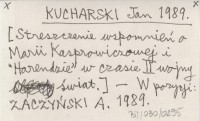 × ×
KUCHARSKI Jan 1989.
[Streszczenie wspomnień o
Marii Kasprowiczowej i
"Harendzie" w czasie II wojny
świat.] — W pozycji:
ZACZYŃSKI A. 1989.